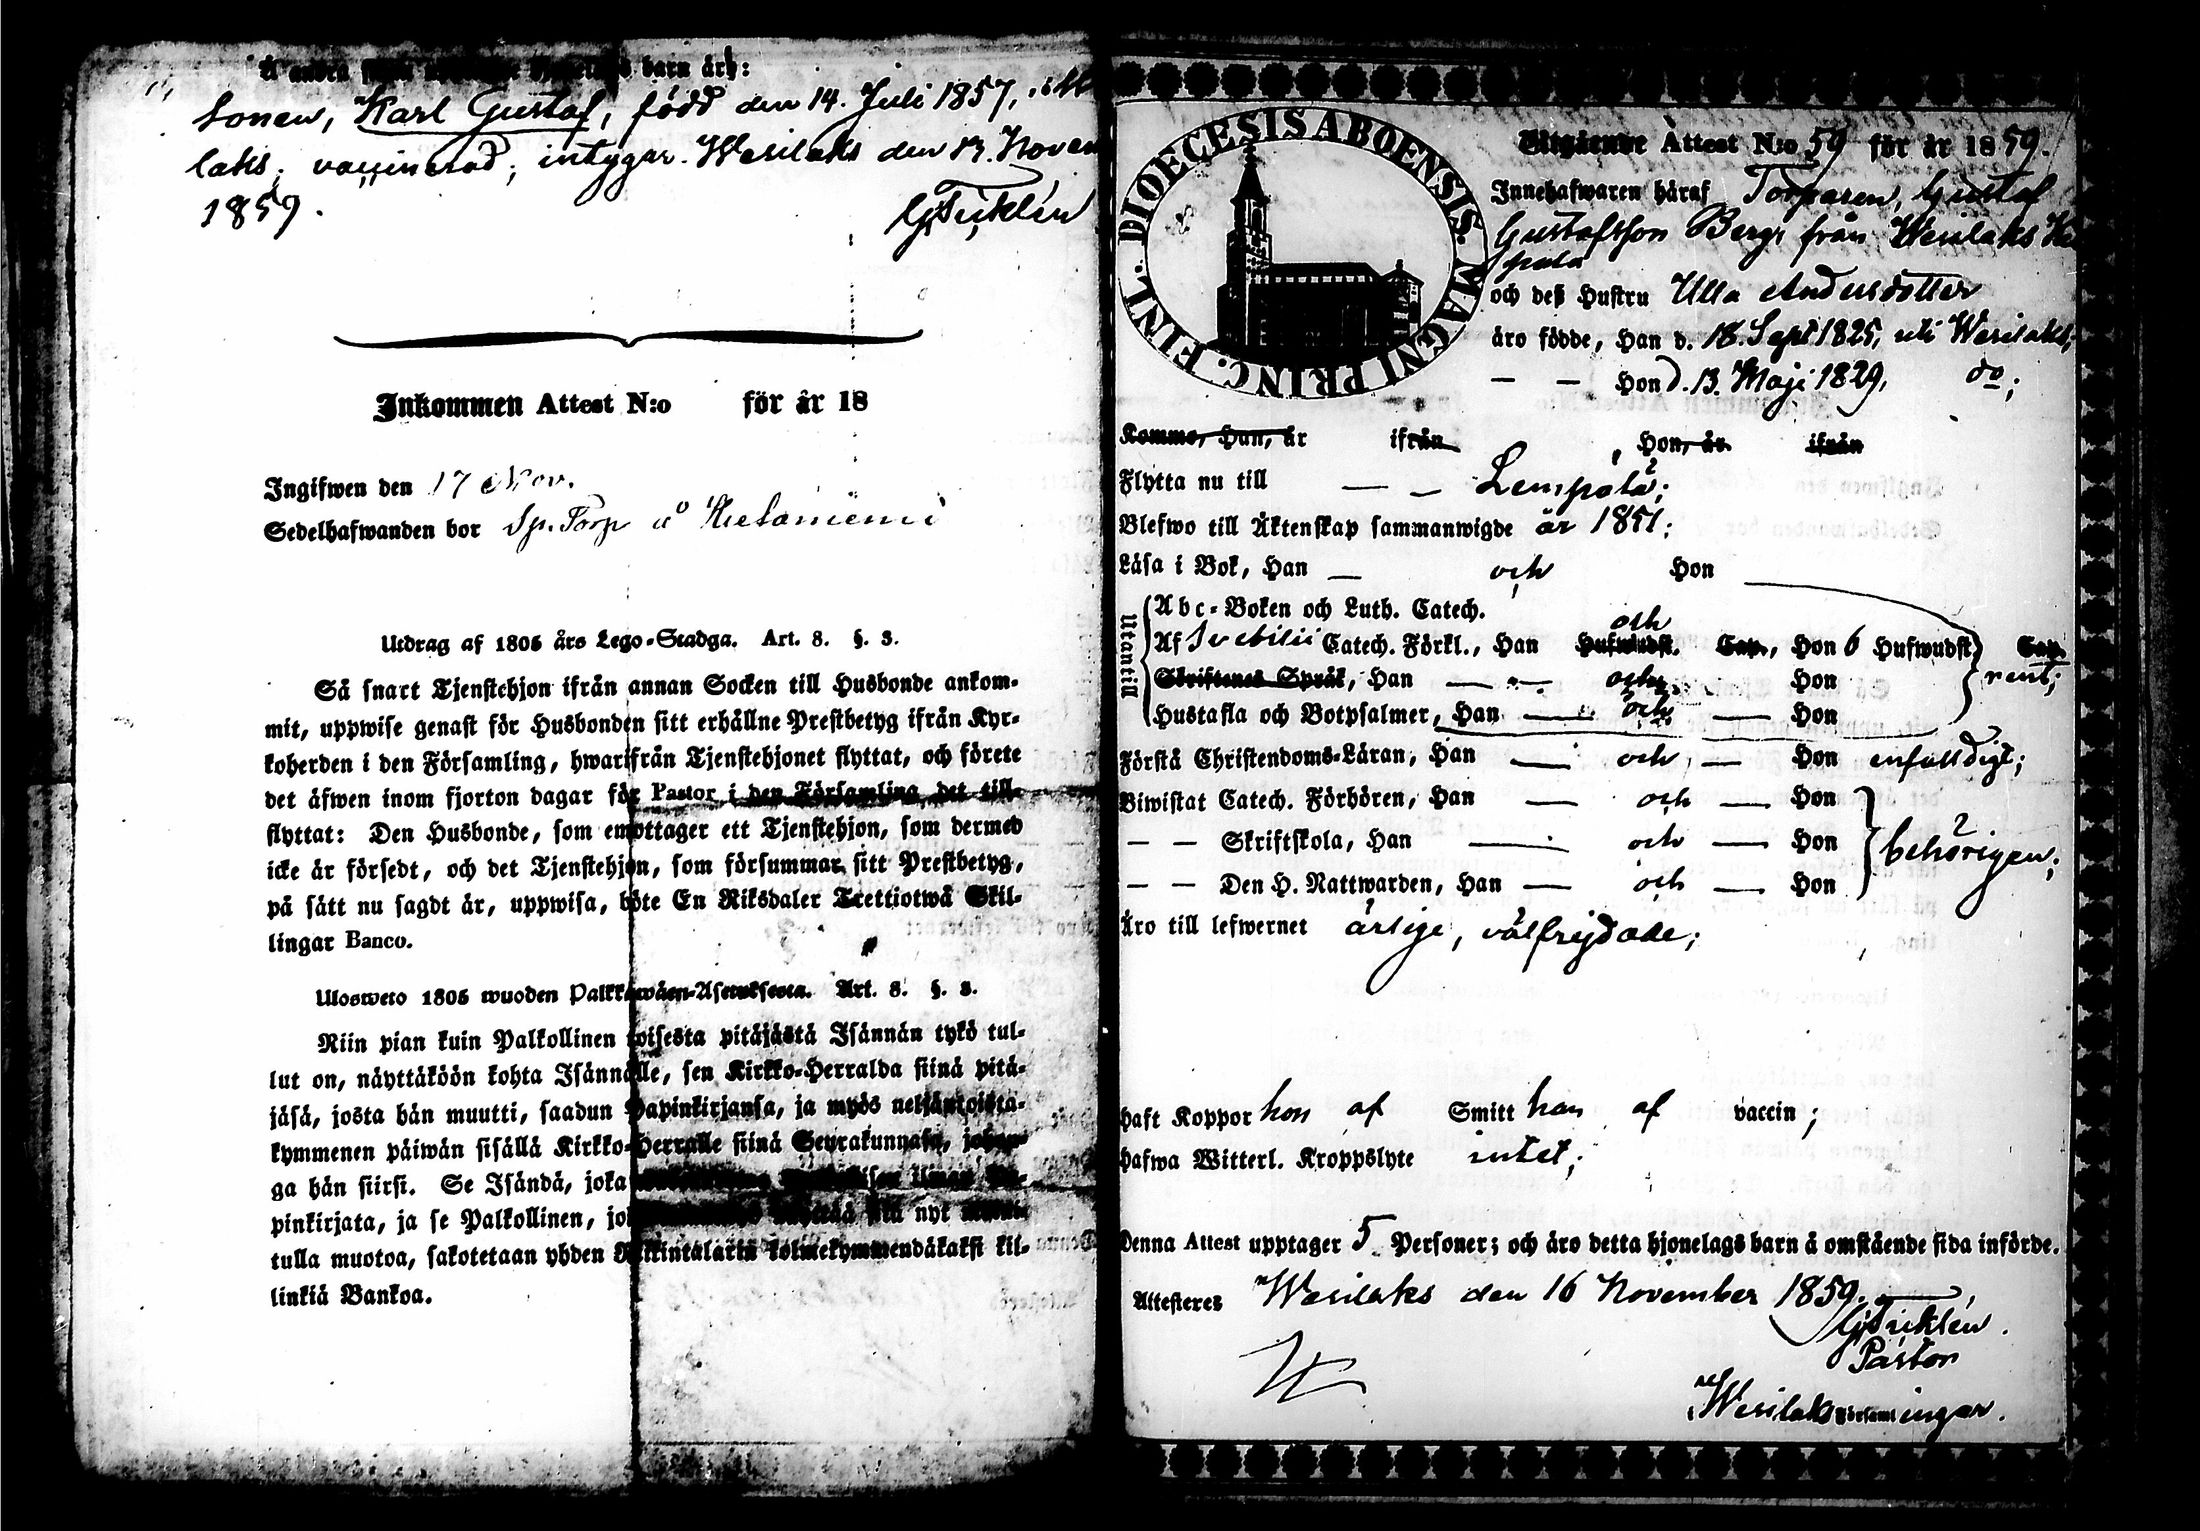 barn äro:
sonen, Karl Gustaf, född den 14. Juli 1857,
laks; vaccinerad; intygar. Wesilaks den 17. Novem
1859.
G Ticklén
Inkommen Attest N:o för år 18
Ingifwen den 17 Nov.
Sedelhafwanden bor Sp. Torp å
Utdrag af 1805 års Lego-Stadga. Art. 8. §. 3.
Så snart Tjenstehjon ifrån annan Socken till Husbonde ankom-
mit, uppwise genast för Husbonden sitt erhållne Prestbetyg ifrån Kyr-
koherden i den Församling, hwarifrån Tjenstehjonet flyttat, och förete
det äfwen inom fjorton dagar för Pastor i den Församling det till-
flyttat: Den Husbonde, som emottager ett Tjenstehjon, som dermed
icke är försedt, och det Tjenstehjon, som försummar sitt Prestbetyg,
på sätt nu sagdt är, uppwisa, böte En Riksdaler Trettiotwå Skil-
lingar Banco.
Ulosweto 1805 wuoden Palkkawäen-Asetuksesta. Art. 8. §. 3.
Niin pian kuin Palkollinen toisesta pitäjästä Isännän tykö tul-
lut on, näyttäköön kohta Isännälle, sen Kirkko-Herralda siinä pitä-
jäsä, josta hän muutti, saadun Papinkirjansa, ja myös neljäntoista-
kymmenen päiwän sisällä Kirkko-Herralle siinä Seurakunnasa, johon-
ga hän siirsi. Se Isändä, joka ilman Pa-
pinkirjata, ja se Palkollinen, joka nyt
tulla muotoa, sakotetaan yhden Riikintalarin kolmekymmendäkaksi kil-
linkiä Bankoa.
DIOECESIS ABOENSIS. MAGNI PRINC. FINL.
Utgående Attest N:o 59 för år 1859.
Innehafwaren häraf Torparen, Gustaf
Gustafsson Berg, från Wesilaks
pala
och deß Hustru Ulla Andersdotter
äro födde, Han d. 18. Sept 1825, uti Wesilaks;
— — Hon d. 13. Maji 1829, do;
Komme, Han, år ifrån , Hon, år ifrån
Flytta nu till — — Lempälä;
Blefwo till Äktenskap sammanwigde år 1851;
Läsa i Bok, Han — och Hon
Utantill
Abc-Boken och Luth. Catech.
och
Af Svebilii Catech. Förkl., Han Hufwudst. Cap., Hon 6 Hufwudst. Cap.
Skriftenes Språk, Han — — och Hon rent;
Hustafla och Botpsalmer, Han — och — Hon
Förstå Christendoms-Läran, Han — och — Hon enfalldigt;
Biwistat Catech. Förhören, Han — och — Hon
— — Skriftskola, Han — och — Hon behörigen;
— — Den H. Nattwarden, Han — och — Hon
Äro till lefwernet ärlige, välfrejdade;
haft Koppor hon af Smitt han af vaccin;
hafwa Witterl. Kroppslyte intet;
Denna Attest upptager 5 Personer; och äro detta hjonelags barn å omstående sida införde.
Attesteres Wesilaks den 16 November 1859.
G Ticklén.
Pastor
Wesilaks Församlingar.